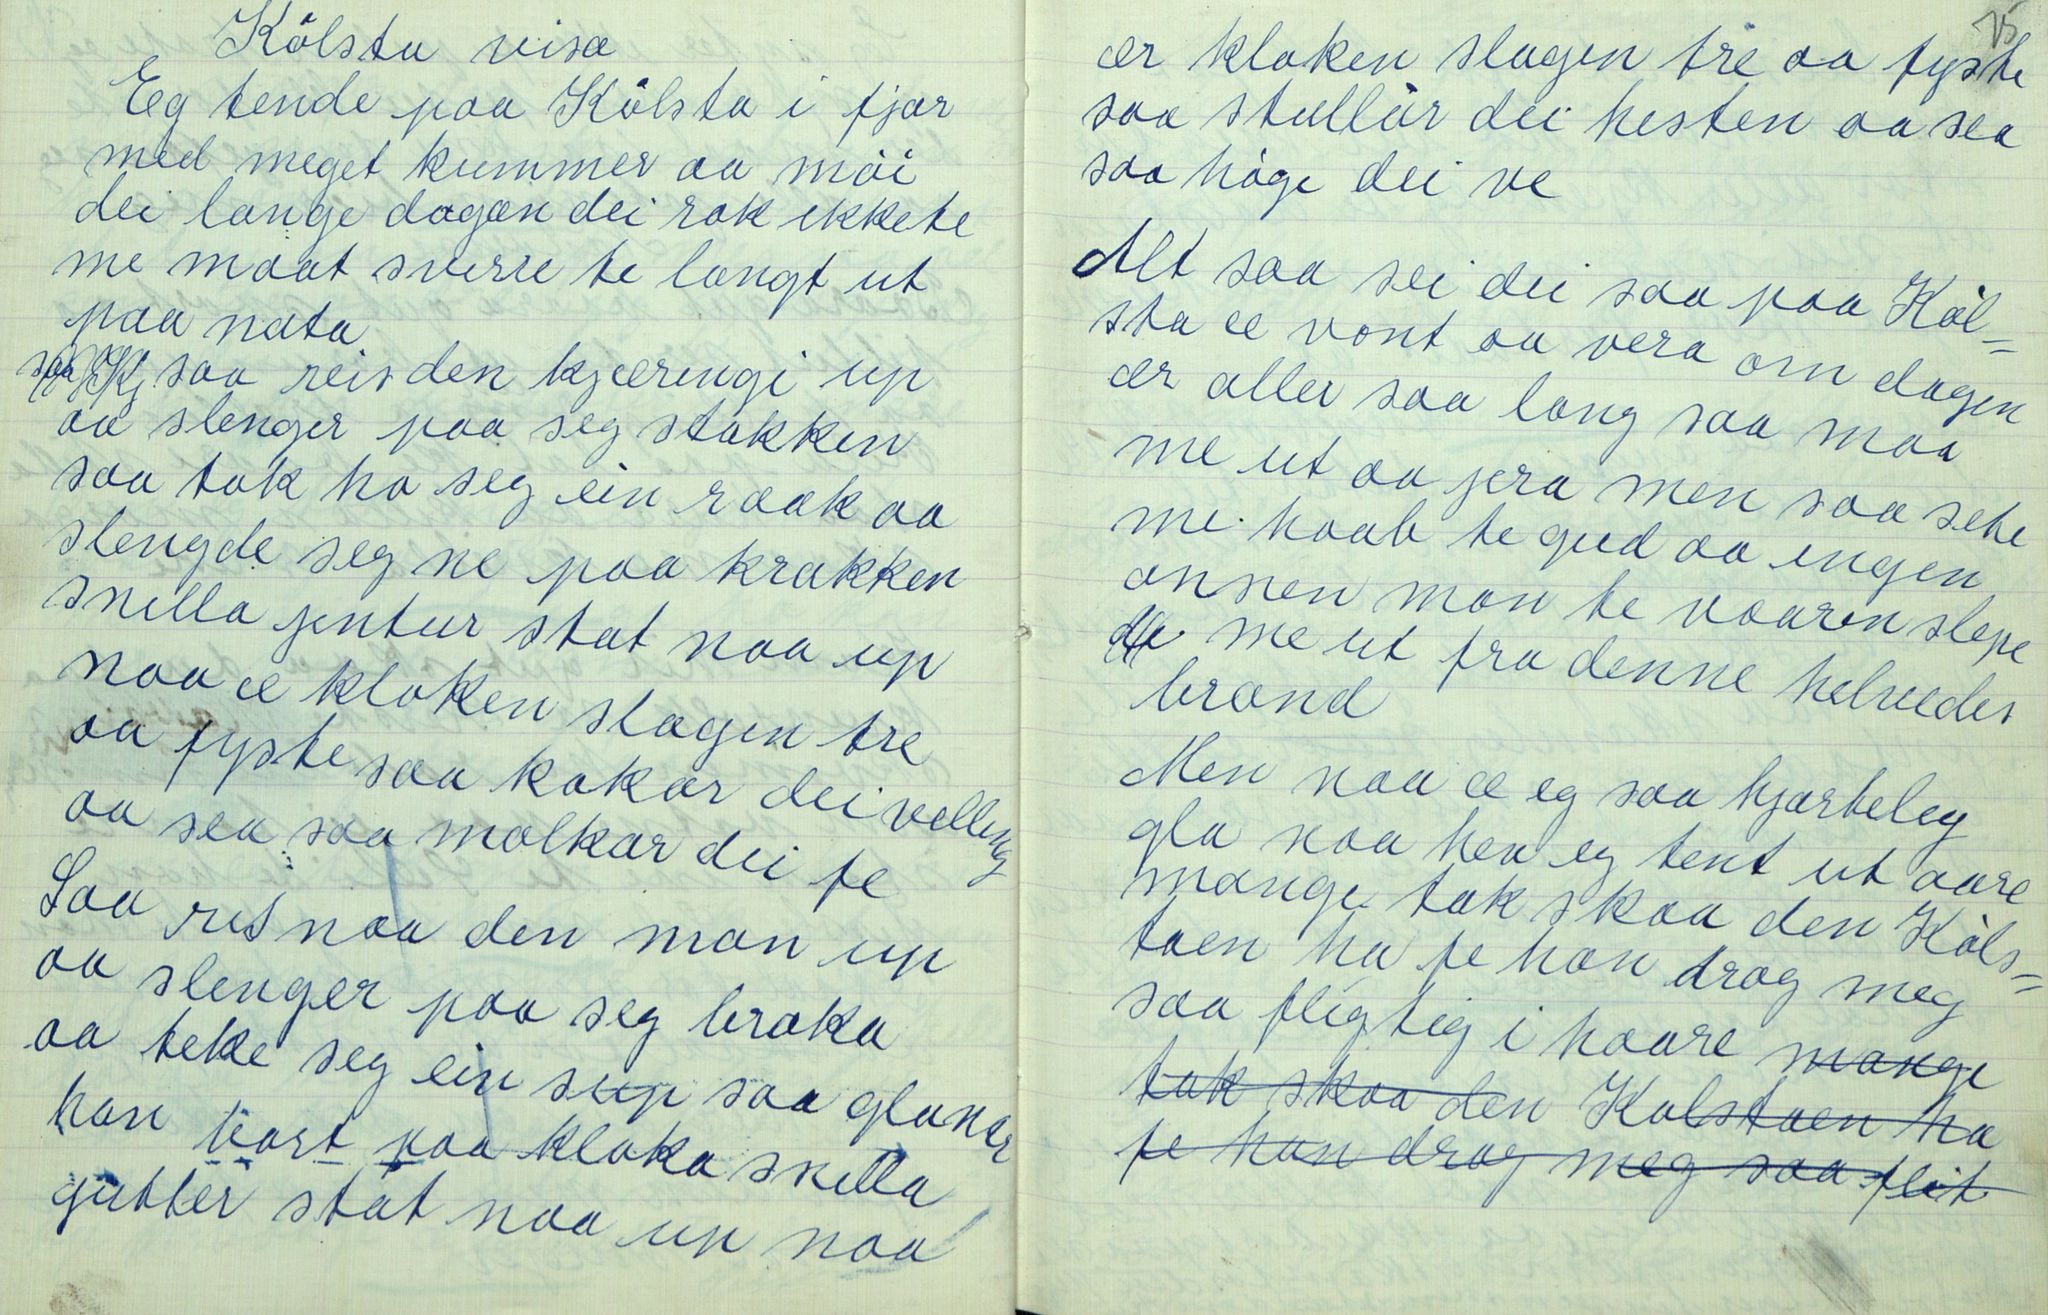 Kålsta visa
Eg tende paa Kålsta i fjor
med meget kummer aa möi
dei lange dagan dei rak ikkete
me maat sverre te langt ut
paa nata
saa reis den kjæringi up
aa slenger paa seg stakken
saa tok ho seg ein raak aa
slengde seg ne paa krakken
snilla jentur stat naa up
naa æ kloken slagen tre
aa fyste saa kokar dei velling
aa sea saa molkar dei fe
Saa ris naa den man up
aa slenger paa seg broka
aa teke seg ein sup saa glaner
han bort paa kloka snilla
gutter stat naa up naa
75
ær kloken slagen tre aa fyste
saa stullår dei hesten aa sea
saa höge dei ve
Alt saa sei dei saa paa Kål=
sta æ vont aa vera om dagen
ær aller saa lang saa maa
me ut aa jera men saa sete
me haab te gud aa ingen
annen man te vaaren slepe
me ut fra denne helvedes
brand
Men naa æ eg saa hjarteleg
gla naa hev eg tent ut aare
mange tak skaa den Kåls=
taen ha fe han drog meg
saa fligtig i haare mange
tak skaa den Kalstaen ha
fe han drog meg saa flit